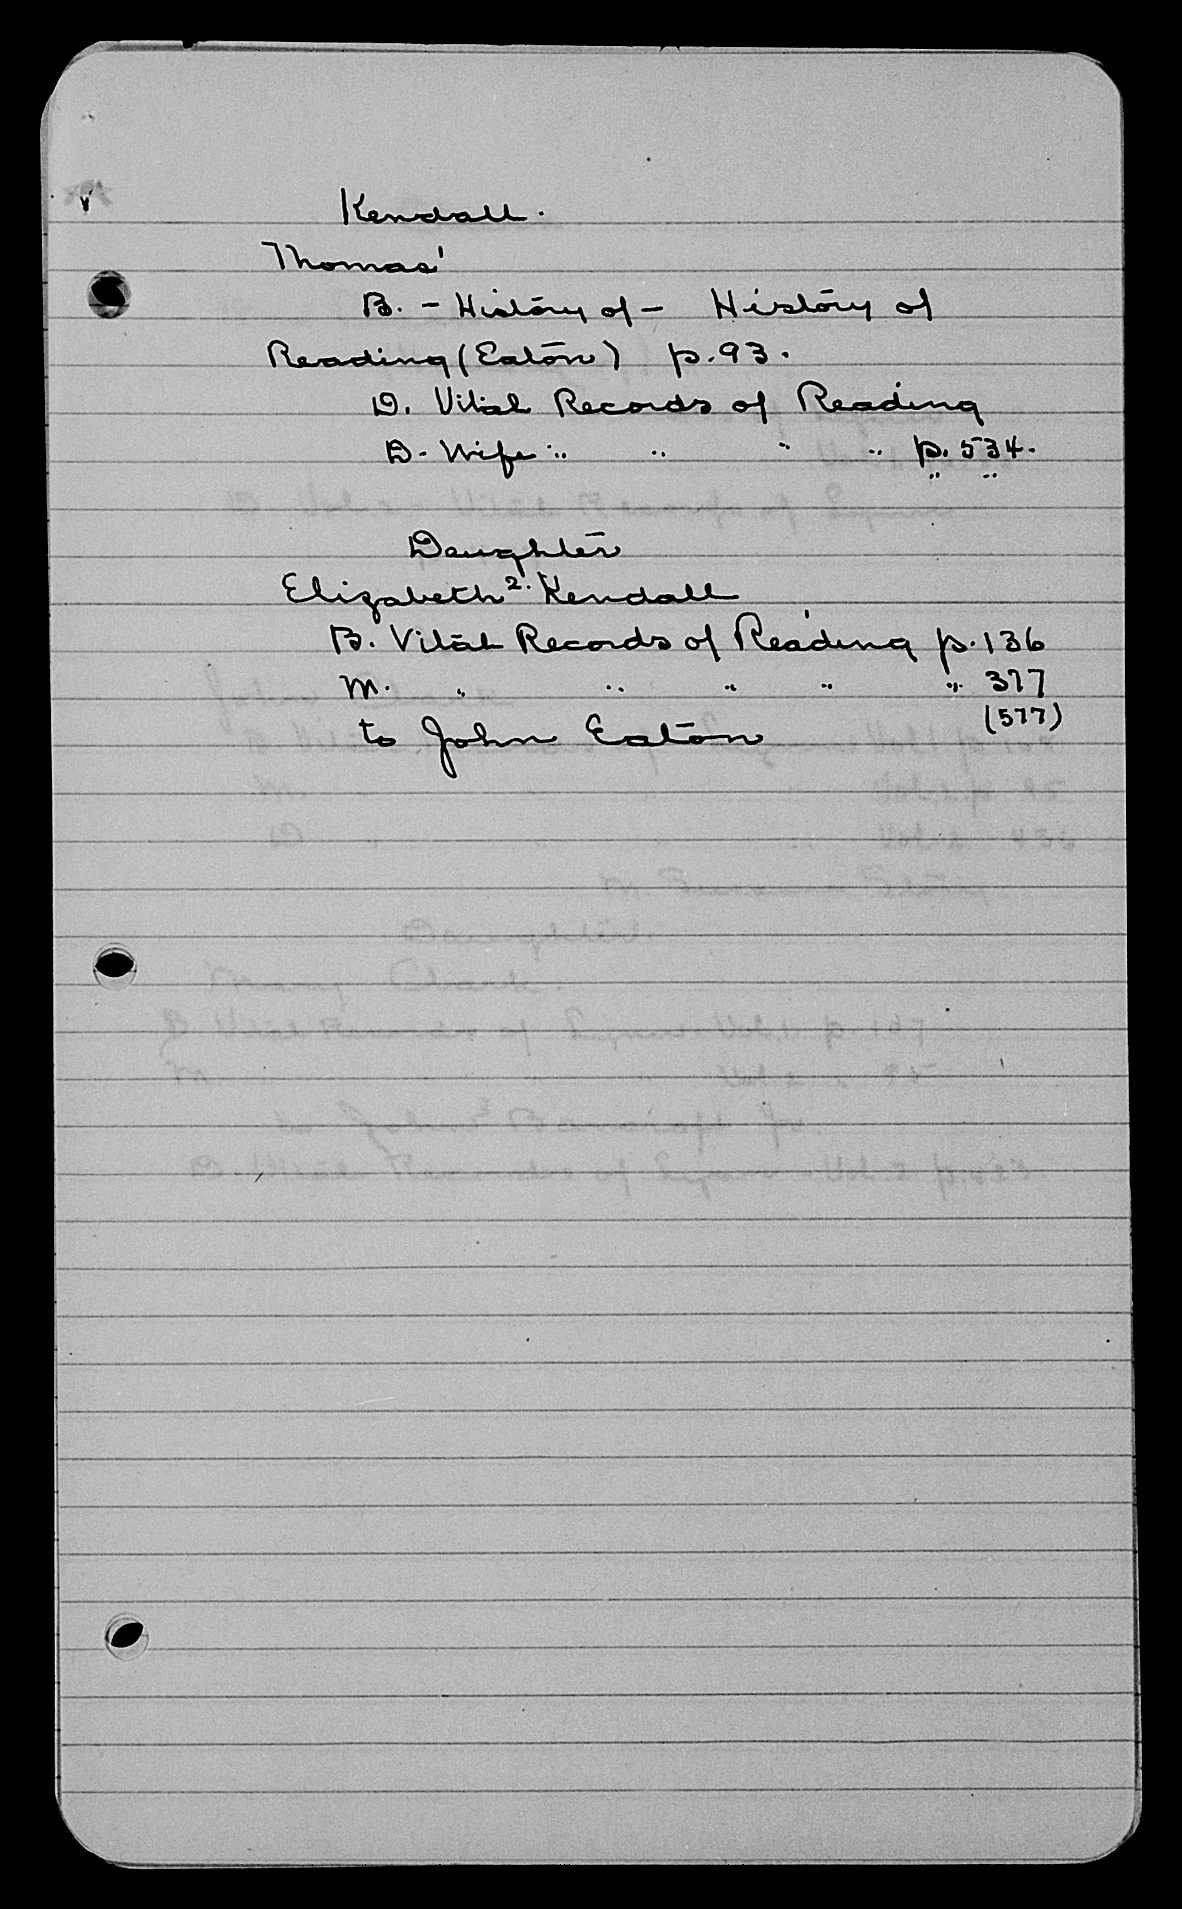 Kendall.
Thomas'
B. - History of - History of
Reading (Eaton) p. 93.
D. Vital Records of Reading
D. Wife " " " " p. 534.
" "
Daughter
Elizabeth 2. Kendall
B. Vital Records of Reading p. 136
M. " " " " " 377
(577)
to John Eaton